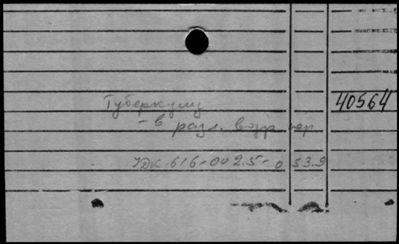 Туберкулез
40564
- в разл. возр. пер.
УДК 616-002.5-053.9